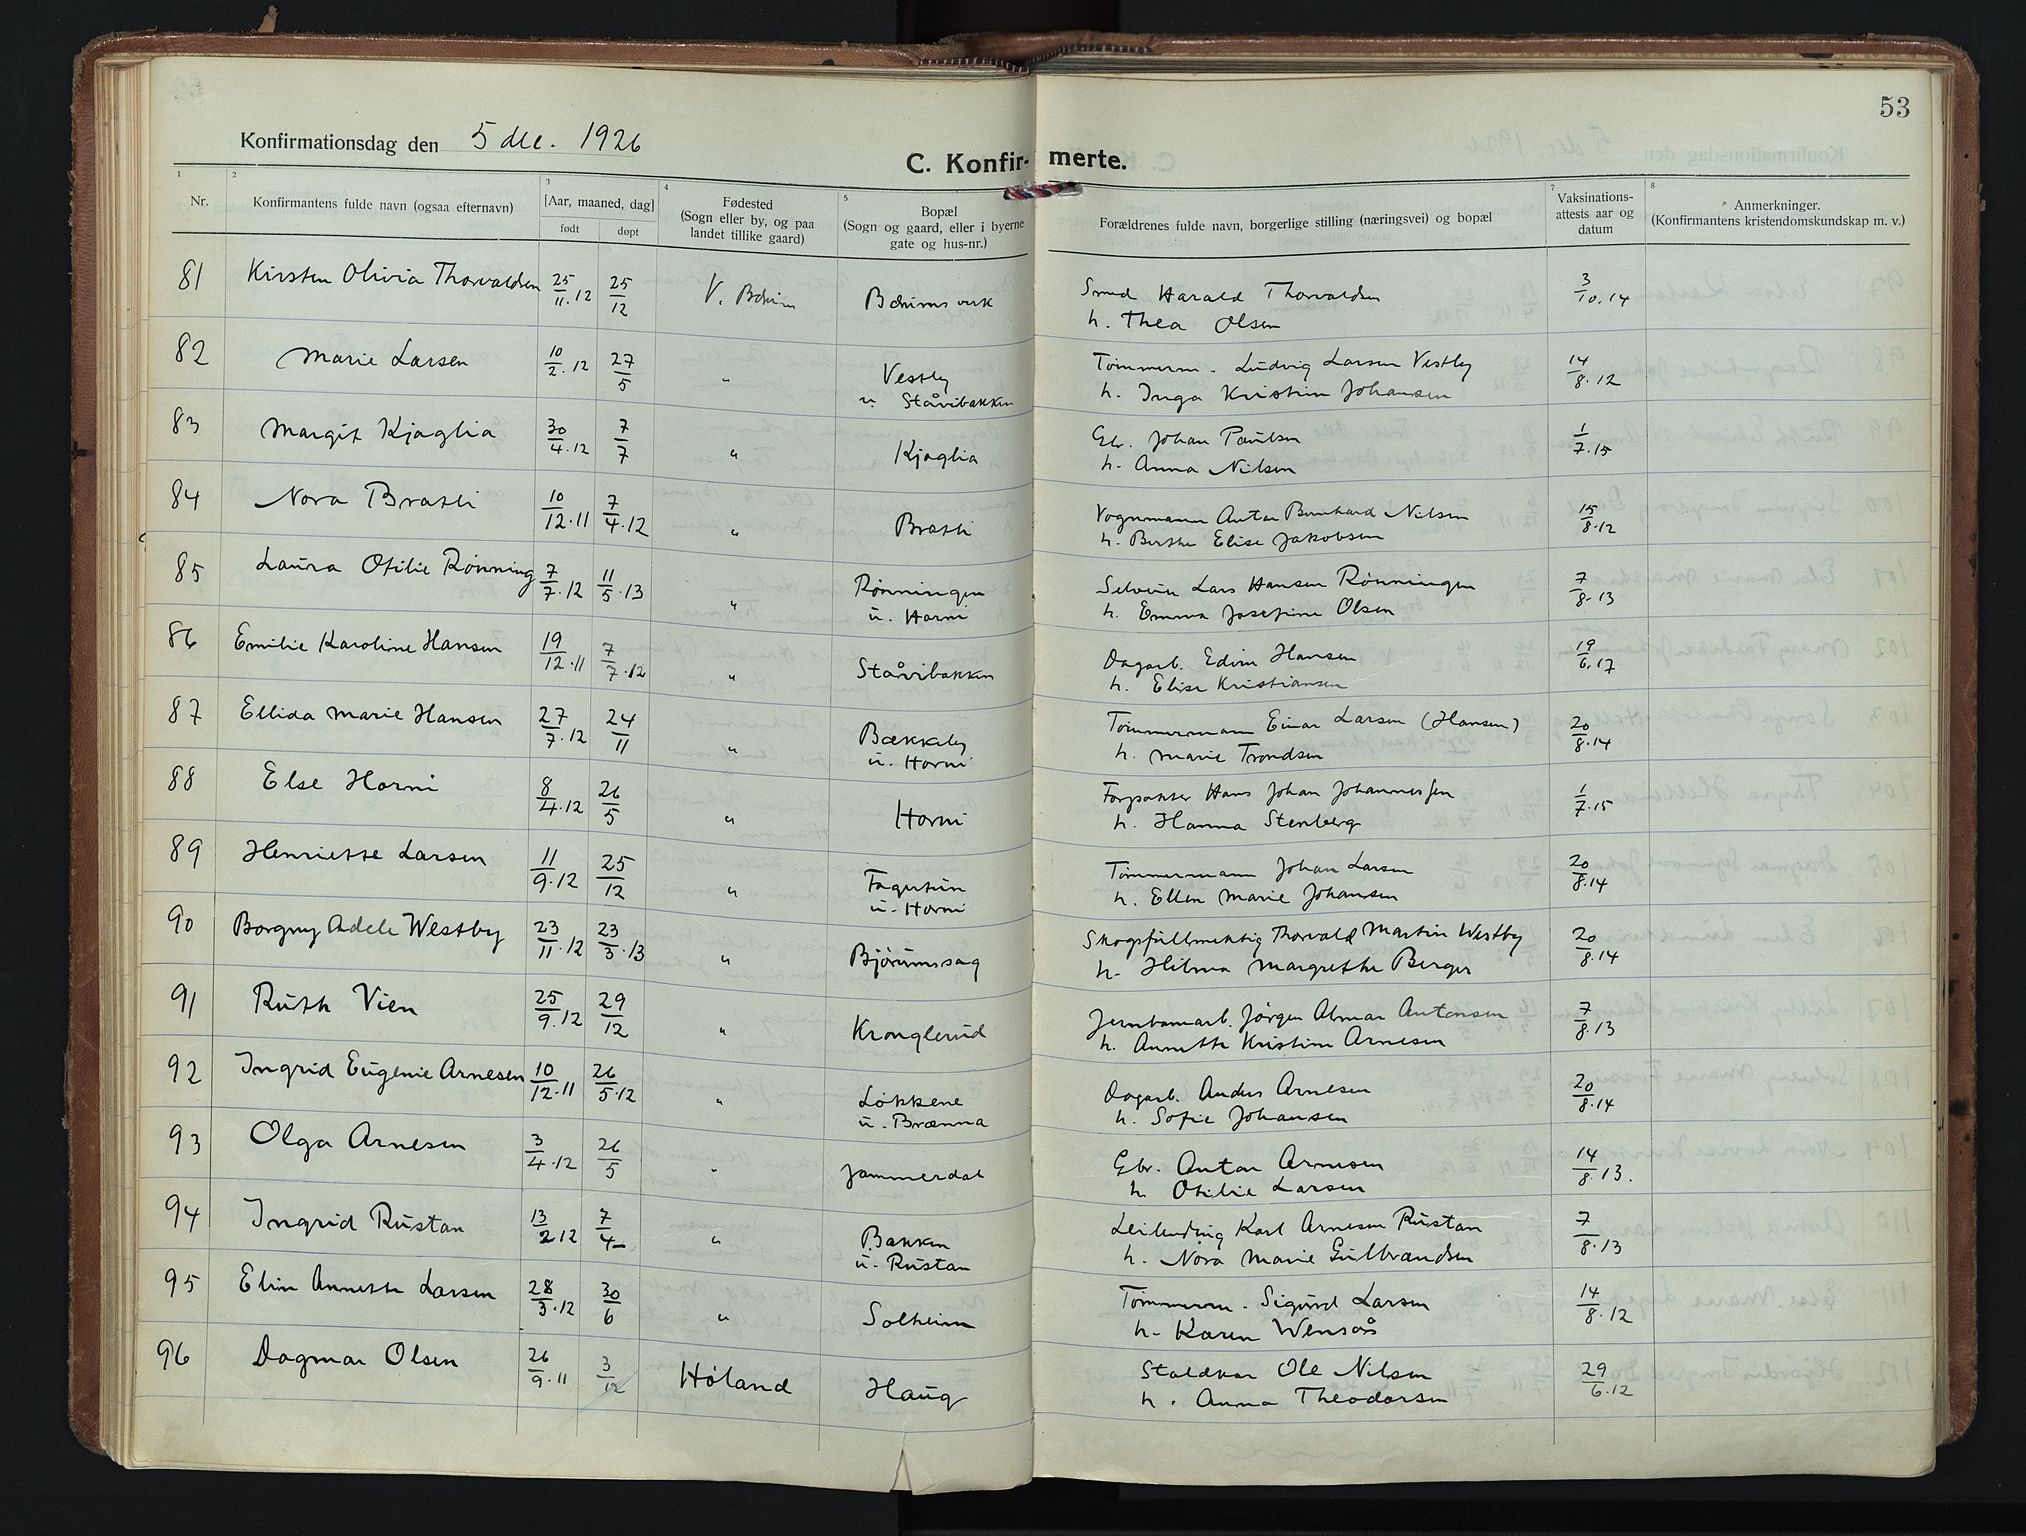 53
Konfirmationsdag den 5 dec. 1926
C. Konfir- merte.
1 2 3 4 5 7 8
Nr.
Konfirmantens fulde navn (ogsaa efternavn)
[Aar, maaned, dag]
født døpt
Fødested
(Sogn eller by, og paa
landet tillike gaard)
Bopæl
(Sogn og gaard, eller i byerne
gate og hus-nr.)
Forældrenes fulde navn, borgerlige stilling (næringsvei) og bopæl
Vaksinations-
attests aar og
datum
Anmerkninger.
(Konfirmantens kristendomskundskap m. v.)
81 Kirsten Olivia Thorvaldsen 25/11.12 25/12 V. Bærum Bærums verk Smed Harald Thorvaldsen 3/10.14
h. Thea Olsen
82 Marie Larsen 10/2.12 27/5 " Vestby Tømmerm. Ludvig Larsen Vestby 14/8.12
u. Ståvibakken h. Inga Kristine Johansen
83 Margit Kjaglia 30/4.12 7/7 " Kjaglia Gbr. Johan Paulsen 1/7.15
h. Anna Nilsen
84 Nora Bratli 10/12.11 7/4.12 " Bratli Vognmann Anton Bernhard Nilsen 15/8.12
h. Berthe Elise Jakobsen
85 Laura Otilie Rønning 7/7.12 11/5.13 " Rønningen Selveier Lars Hansen Rønningen 7/8.13
u. Horni h. Emma Josefine Olsen
86 Emilie Karoline Hansen 19/12.11 7/7.12 " Ståvibakken Dagarb. Edvin Hansen 19/6.17
h. Elise Kristiansen
87 Ellida Marie Hansen 27/7.12 24/11 " Bækkeby Tømmermann Einar Larsen (Hansen) 20/8.14
u. Horni h. Marie Trondsen
88 Else Horni 8/4.12 26/5 " Horni Forpakter Hans Johan Johannessen 1/7.15
h. Hanna Stenberg
89 Henriette Larsen 11/9.12 25/12 " Fagertun Tømmermann Johan Larsen 20/8.14
u. Horni h. Ellen Marie Johansen
90 Borgny Adele Westby 23/11.12 23/3.13 " Bjørumsaag Skogsfullmektig Thorvald Martin Westby 20/8.14
h. Hilma Margrethe Berger
91 Ruth Vien 25/9.12 29/12 " Kronglerud Jernbanearb. Jørgen Almar Antonsen 7/8.13
h. Annette Kristine Arnesen
92 Ingrid Eugenie Arnesen 10/12.11 26/5.12 " Løkkene Dagarb. Anders Arnesen 20/8.14
u. Brænna h. Sofie Johansen
93 Olga Arnesen 3/4.12 26/5 " Jammerdal Gbr. Anton Arnesen 14/8.13.
h. Otilie Larsen
94 Ingrid Rustan 13/2 12 7/4 " Bakken Leilending Karl Arnesen Rustan 7/8.13
u. Rustan h. Nora Marie Gulbrandsen
95 Elin Annette Larsen 28/3.12 30/6 " Solheim Tømmerm. Sigurd Larsen 14/8.12
h. Karen Wensås
96 Dagmar Olsen 26/9.11 3/12 Høland Haug Staldkar Ole Nilsen 29/6.12
h. Anna Theodorsen